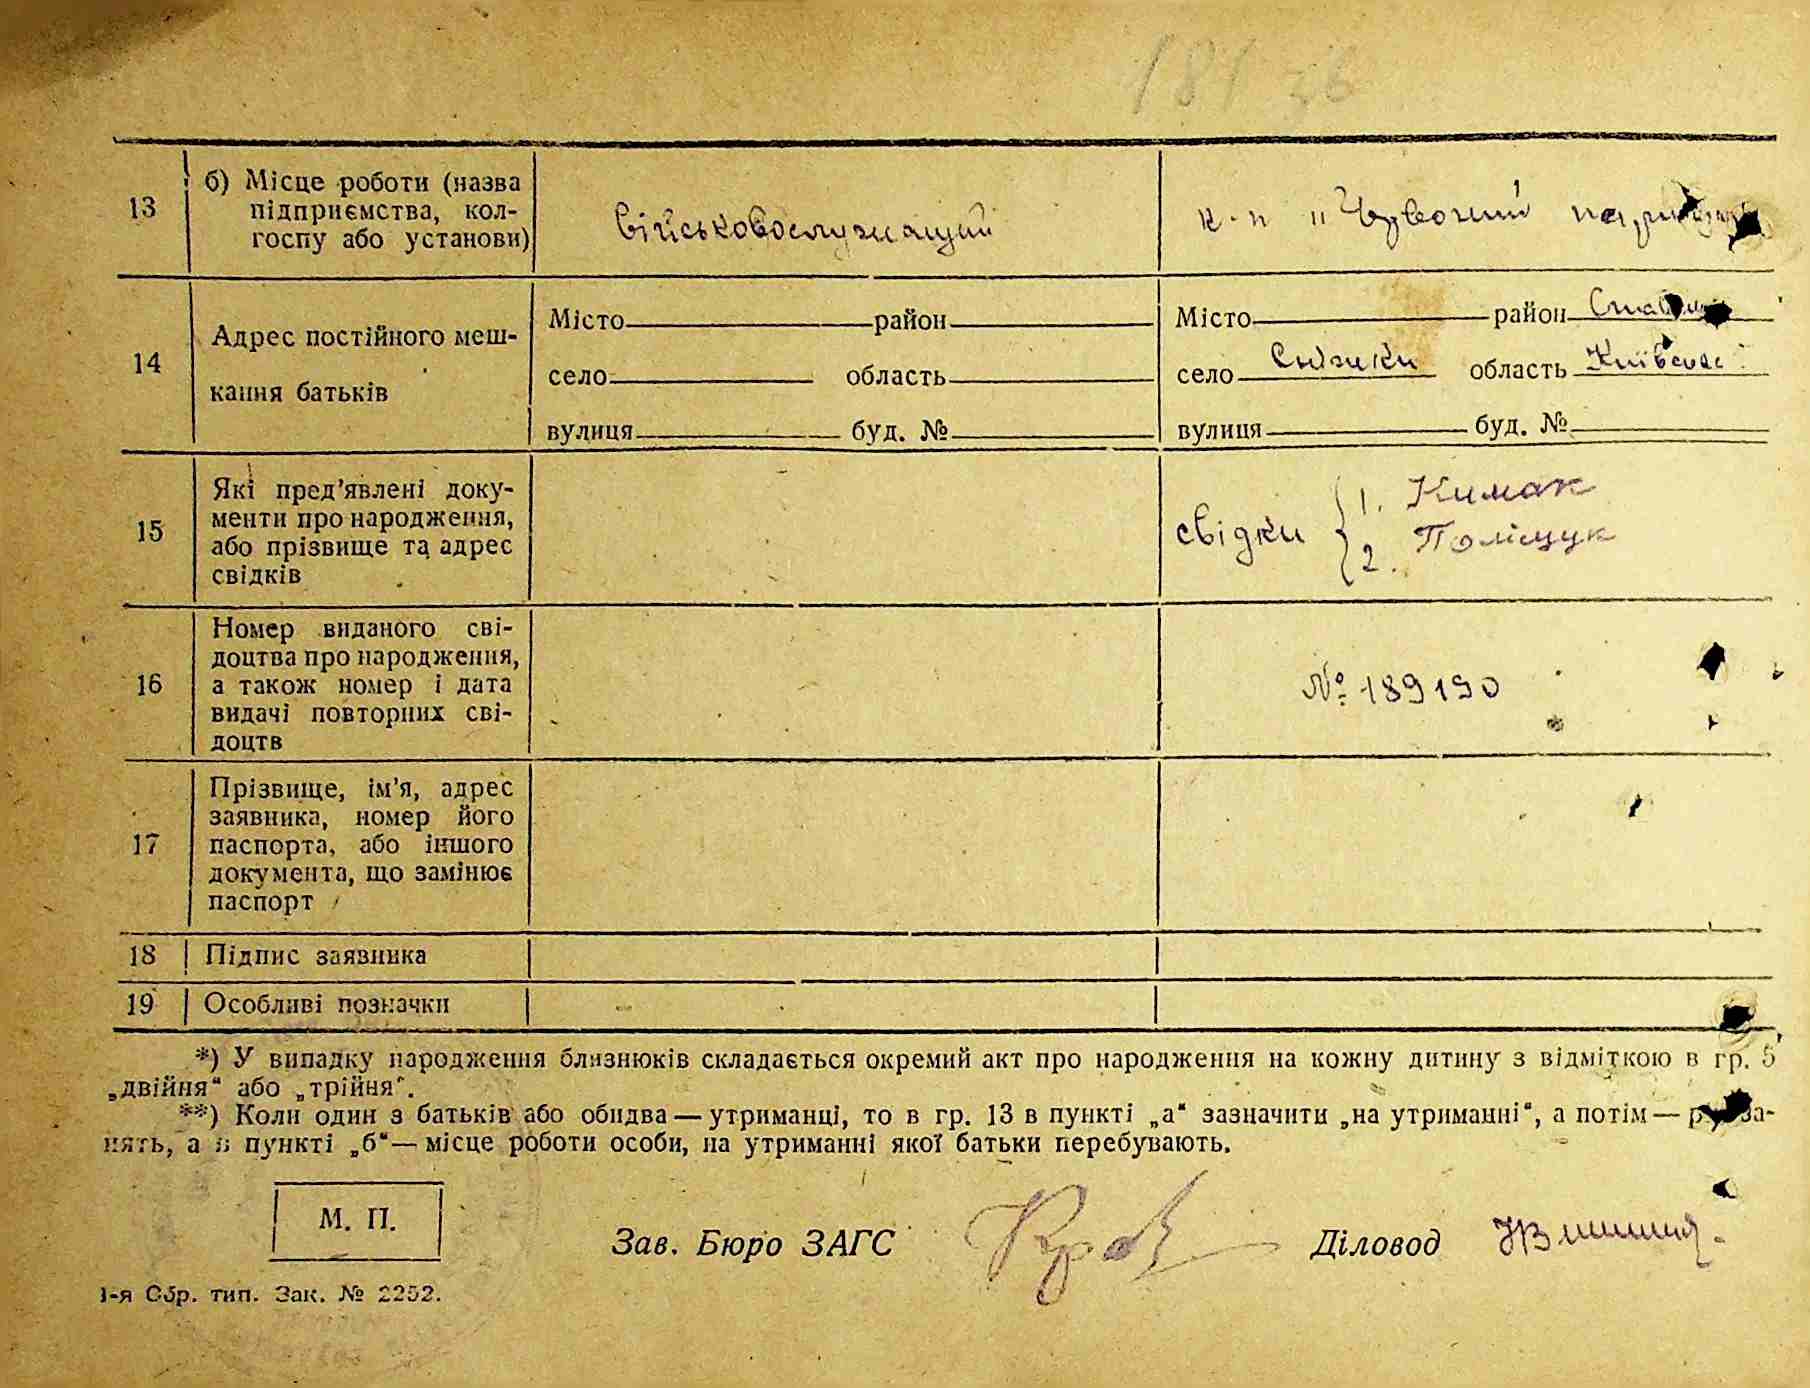 181 зв
13 б) Місце роботи (назва
підприємства, кол-
госпу або установи)
військовослужащий
к-п "Червоний
14 Адрес постійного меш-
кання батьків
Місто район
село область
вулиця буд. №
Місто район
село Сніжки область Київська
вулиця буд. №
15 Які пред'явлені доку-
менти про народження,
або прізвище та адрес
свідків
свідки 1. Кимак
2. Поліщук
16 Номер виданого сві-
доцтва про народження,
а також номер і дата
видачі повторних сві-
доцтв
№ 189190
17 Прізвище, ім'я, адрес
заявника, номер його
паспорта, або іншого
документа, що замінює
паспорт
18 Підпис заявника
19 Особливі позначки
*) У випадку народження близнюків складається окремий акт про народження на кожну дитину з відміткою в гр. 5
„двійня“ або „трійня“.
**) Коли один з батьків або обидва — утриманці, то в гр. 13 в пункті „а“ зазначити „на утриманні“, а потім —
нять, а в пункті „б“ — місце роботи особи, на утриманні якої батьки перебувають.
М. П.
Зав. Бюро ЗАГС Діловод
1-я Обр. тип. Зак. № 2252.